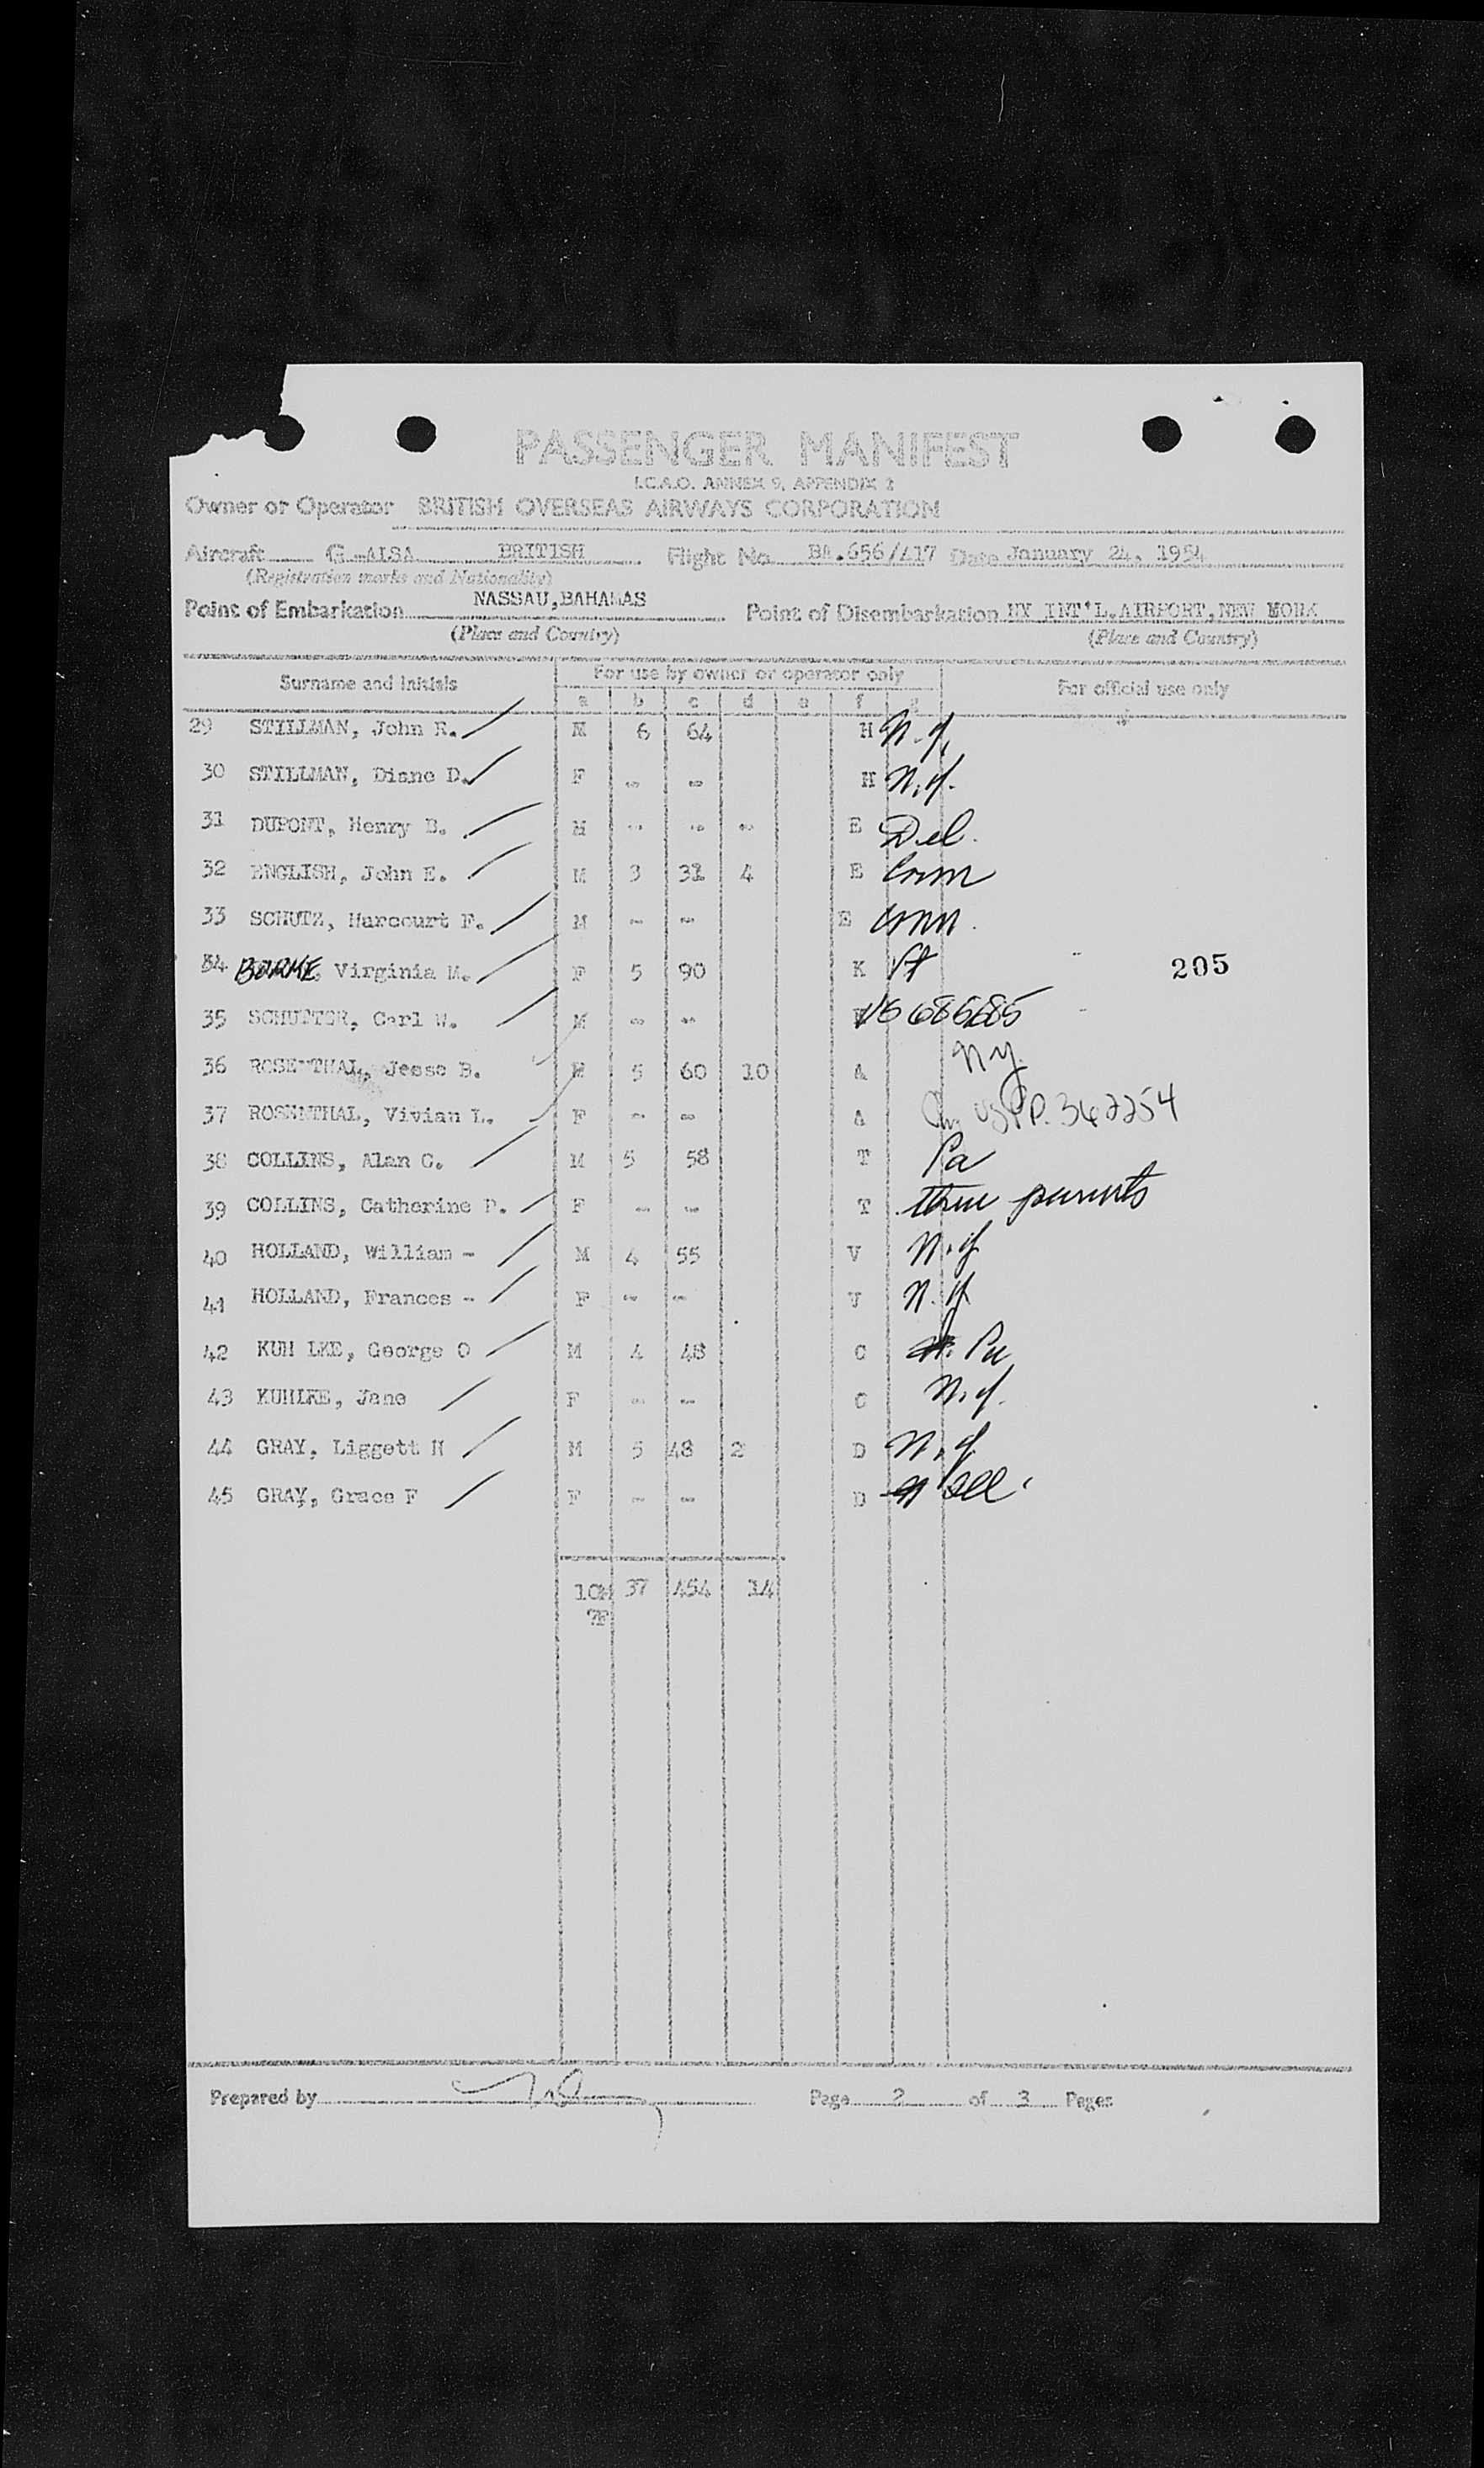 PASSENGER MANIFEST
I.C.A.O. ANNEX 9, APPENDIX 2
Owner or Operator BRITISH OVERSEAS AIRWAYS CORPORATION
Aircraft G-ALSA BRITISH Flight No. BA.656/417 Date January 24, 1954
(Registration marks and Nationality)
Point of Embarkation NASSAU, BAHAMAS Point of Disembarkation INT'L. AIRPORT, NEW
(Place and Country) (Place and Country)
Surname and Initials For use by owner or operator only For official use only
a b c d e f g
29 STILLMAN, John R. M 6 64 H N.Y.
30 STILLMAN, Diane D. F - - H N.Y.
31 DUPONT, Henry B. M - - - E Del.
32 ENGLISH, John E. M 3 31 4 E Conn
33 SCHUTZ, Harcourt F. M - - E Conn.
34 Virginia M. F 5 90 K Vt
205
35 SCHUTTER, Carl W. M - - 686685
36 ROSENTHAL, Jesse B. M 5 60 10 A NY.
37 ROSENTHAL, Vivian L. F - - A USPP. 342254
38 COLLINS, Alan C. M 5 58 T Pa
39 COLLINS, Catherine P. F - - T thru parents
40 HOLLAND, William - M 4 55 V N.Y.
41 HOLLAND, Frances - F - - V N.Y.
42 KUH LKE, George O M 4 48 C Pa
43 KUHLKE, Jane F - - C N.Y.
44 GRAY, Liggett N M 5 48 2 D N.Y.
45 GRAY, Grace F F - - D Ill.
10M 37 454 14
7F
Prepared by Page 2 of 3 Pages